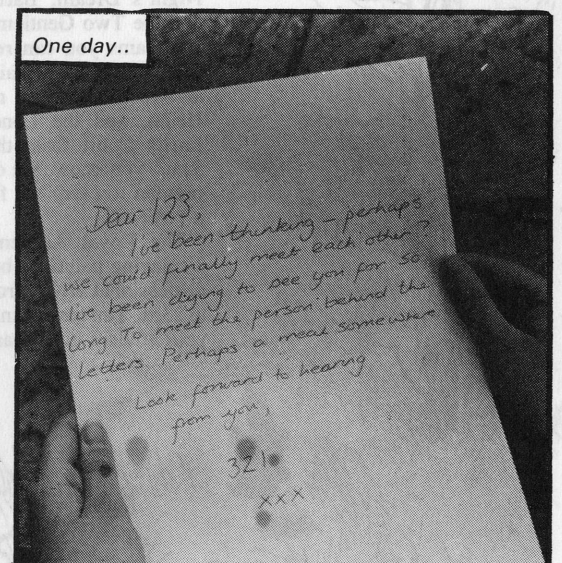 One day..
Dear 123,
I've been thinking – perhaps
we could finally meet each other?
I've been dying to see you for so
long To meet the person behind the
letters. Perhaps a meal somewhere
Look forward to hearing
from you,
321
xxx